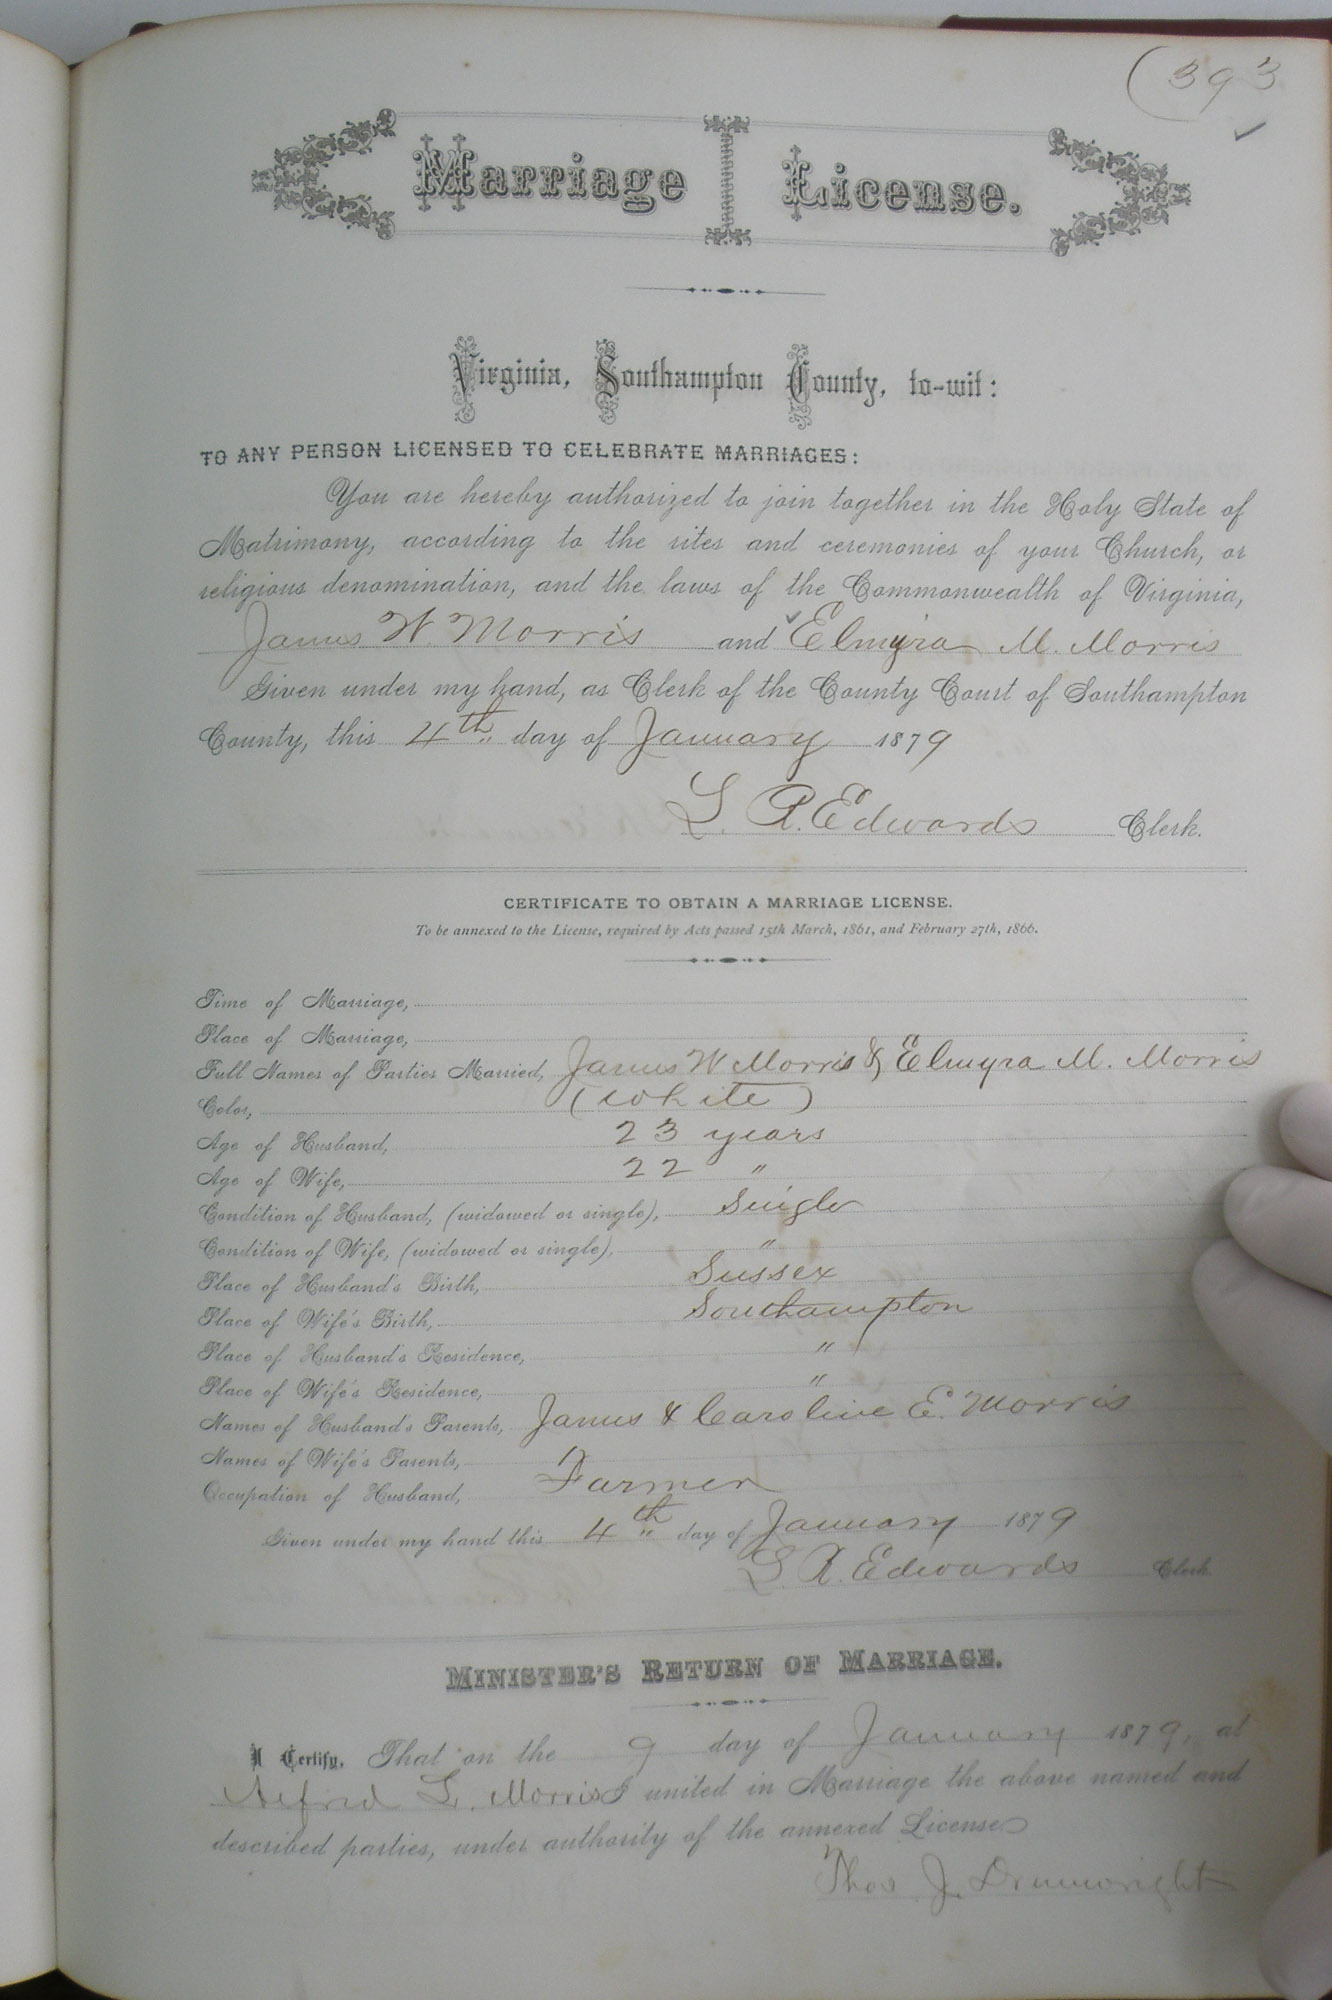 (393
Marriage License.
Virginia, Southampton County, to-wit:
TO ANY PERSON LICENSED TO CELEBRATE MARRIAGES:
You are hereby authorized to join together in the Holy State of
Matrimony, according to the rites and ceremonies of your Church, or
religious denomination, and the laws of the Commonwealth of Virginia,
James W. Morris and Elmyra M. Morris
Given under my hand, as Clerk of the County Court of Southampton
County, this 4th day of January 1879
L. R. Edwards Clerk.
CERTIFICATE TO OBTAIN A MARRIAGE LICENSE.
To be annexed to the License, required by Acts passed 15th March, 1861, and February 27th, 1866.
Time of Marriage,
Place of Marriage,
Full Names of Parties Married, James W Morris & Elmyra M. Morris
Color, (White)
Age of Husband, 23 years
Age of Wife, 22 "
Condition of Husband, (widowed or single), Single
Condition of Wife, (widowed or single), "
Place of Husband's Birth, Sussex
Place of Wife's Birth, Southampton
Place of Husband's Residence, "
Place of Wife's Residence, "
Names of Husband's Parents, James & Caroline E. Morris
Names of Wife's Parents,
Occupation of Husband, Farmer
Given under my hand this 4th day of January 1879
L. R. Edwards Clerk.
MINISTER'S RETURN OF MARRIAGE.
I Certify, That on the 9 day of January 1879, at
Alfred L. Morris I united in Marriage the above named and
described parties, under authority of the annexed License
Thos. J. Drumwright